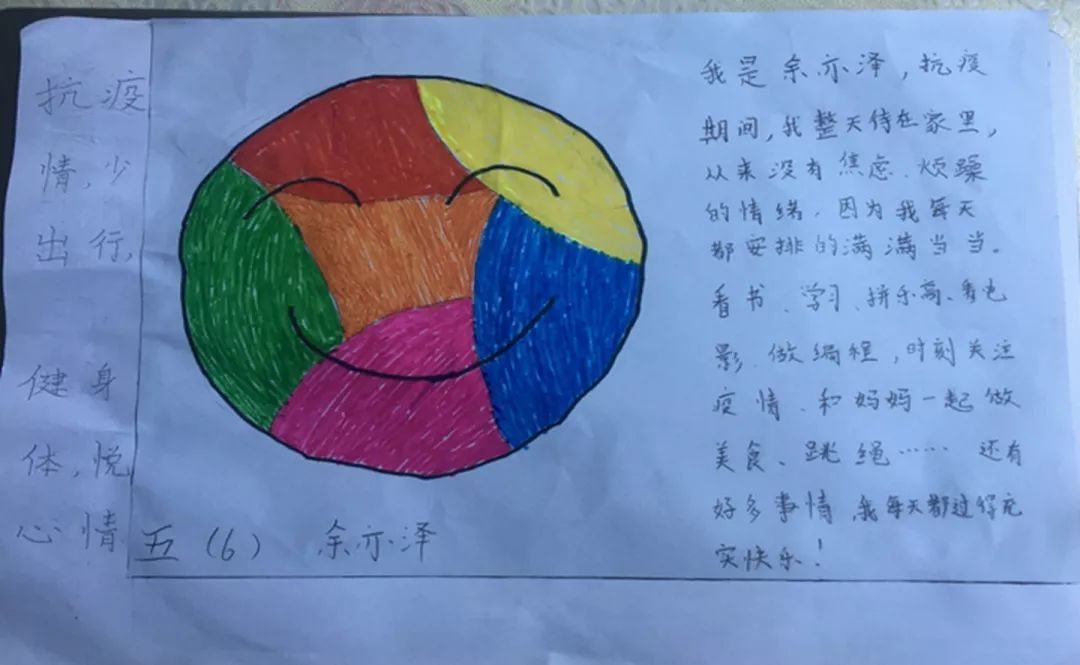 抗疫
情，少
出行，
健身
体，悦
心情
五（6） 余亦泽
我是余亦泽，抗疫
期间，我整天待在家里，
从来没有焦虑、烦躁
的情绪，因为我每天
都安排的满满当当。
看书、学习、拼乐高、看电
影、做编程，时刻关注
疫情、和妈妈一起做
美食、跳绳…… 还有
好多事情，我每天都过得充
实快乐！